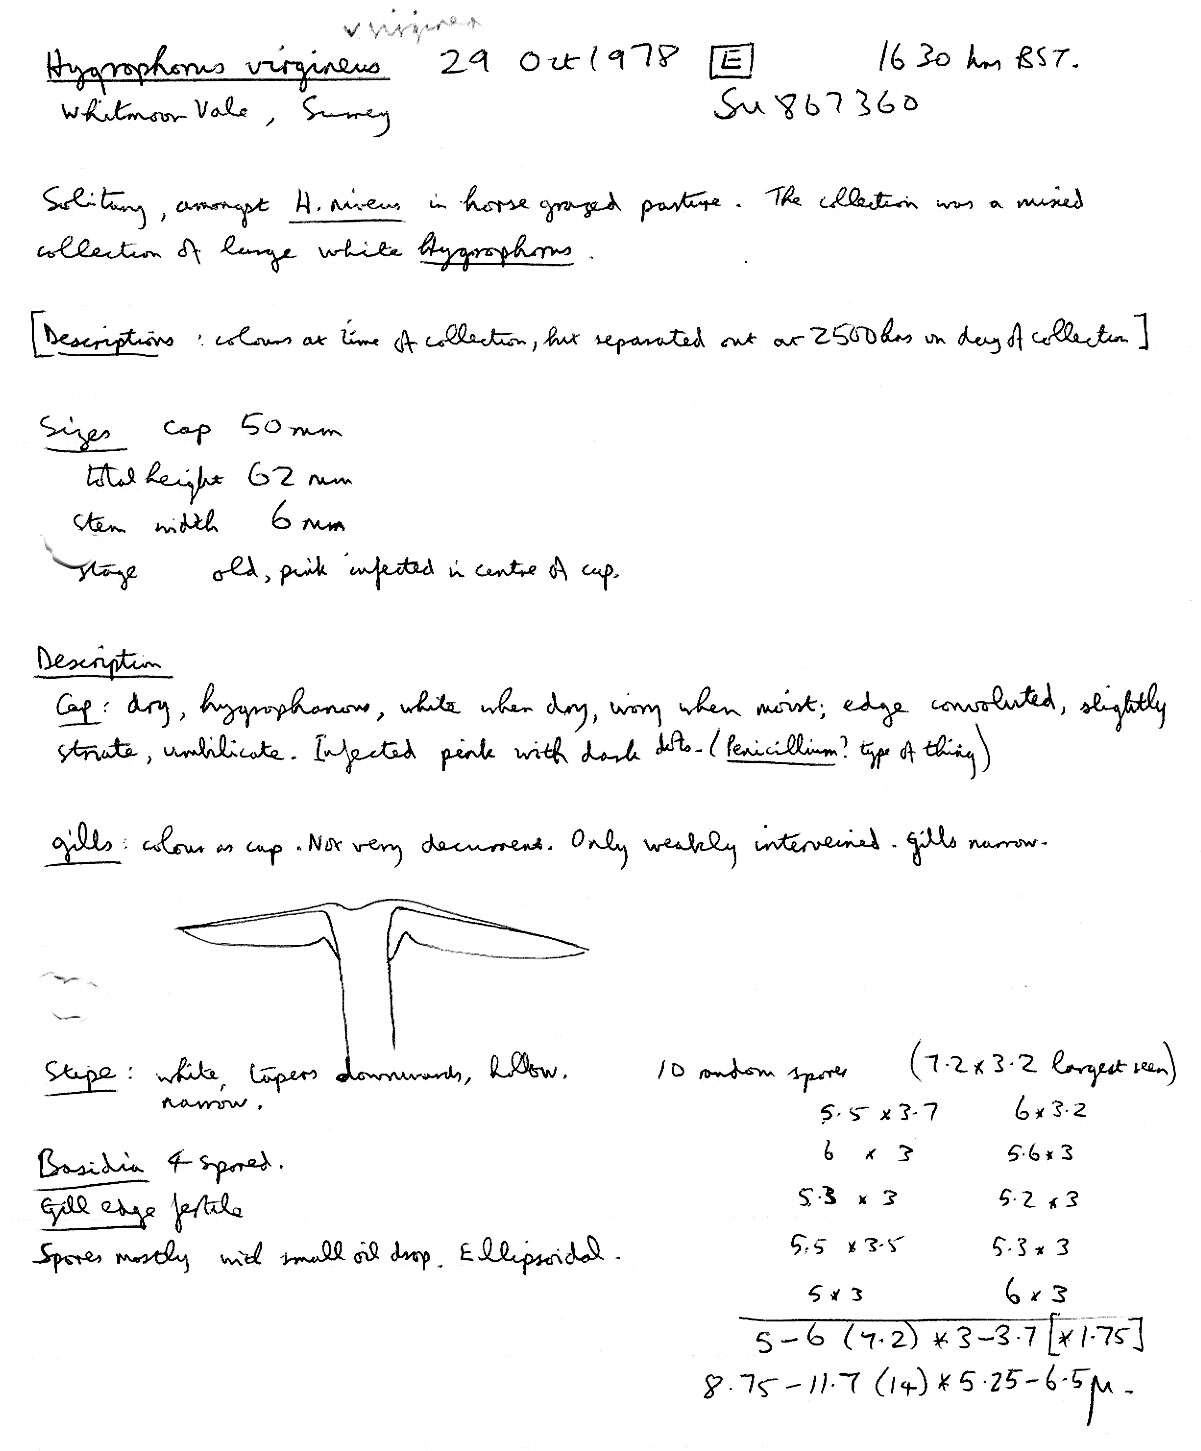 virginea
Hygrophorus virgineus 29 Oct 1978 [E] 1630 hrs BST.
Whitmoor Vale, Surrey SU 867360
Solitary, amongst H. niveus in horse grazed pasture. The collection was a mixed
collection of large white Hygrophorus.
[Descriptions: colours at time of collection, but separated out at 2500 hrs on day of collection]
Sizes cap 50 mm
total height 62 mm
stem width 6 mm
stage old, pink infected in centre of cap.
Description
Cap: dry, hygrophanous, white when dry, ivory when moist; edge convoluted, slightly
striate, umbilicate. Infected pink with dark dots - (Penicillium? type of thing)
gills: colour as cap. Not very decurrent. Only weakly interveined. Gills narrow.
Stipe: white, tapers downwards, hollow.
narrow.
Basidia 4 spored.
Gill edge fertile
Spores mostly with small oil drop. Ellipsoidal.
10 random spores (7.2 x 3.2 largest seen)
5.5 x 3.7 6 x 3.2
6 x 3 5.6 x 3
5.3 x 3 5.2 x 3
5.5 x 3.5 5.3 x 3
5 x 3 6 x 3
5-6 (7.2) x 3-3.7 [x 1.75]
8.75-11.7 (14) x 5.25-6.5 µ.